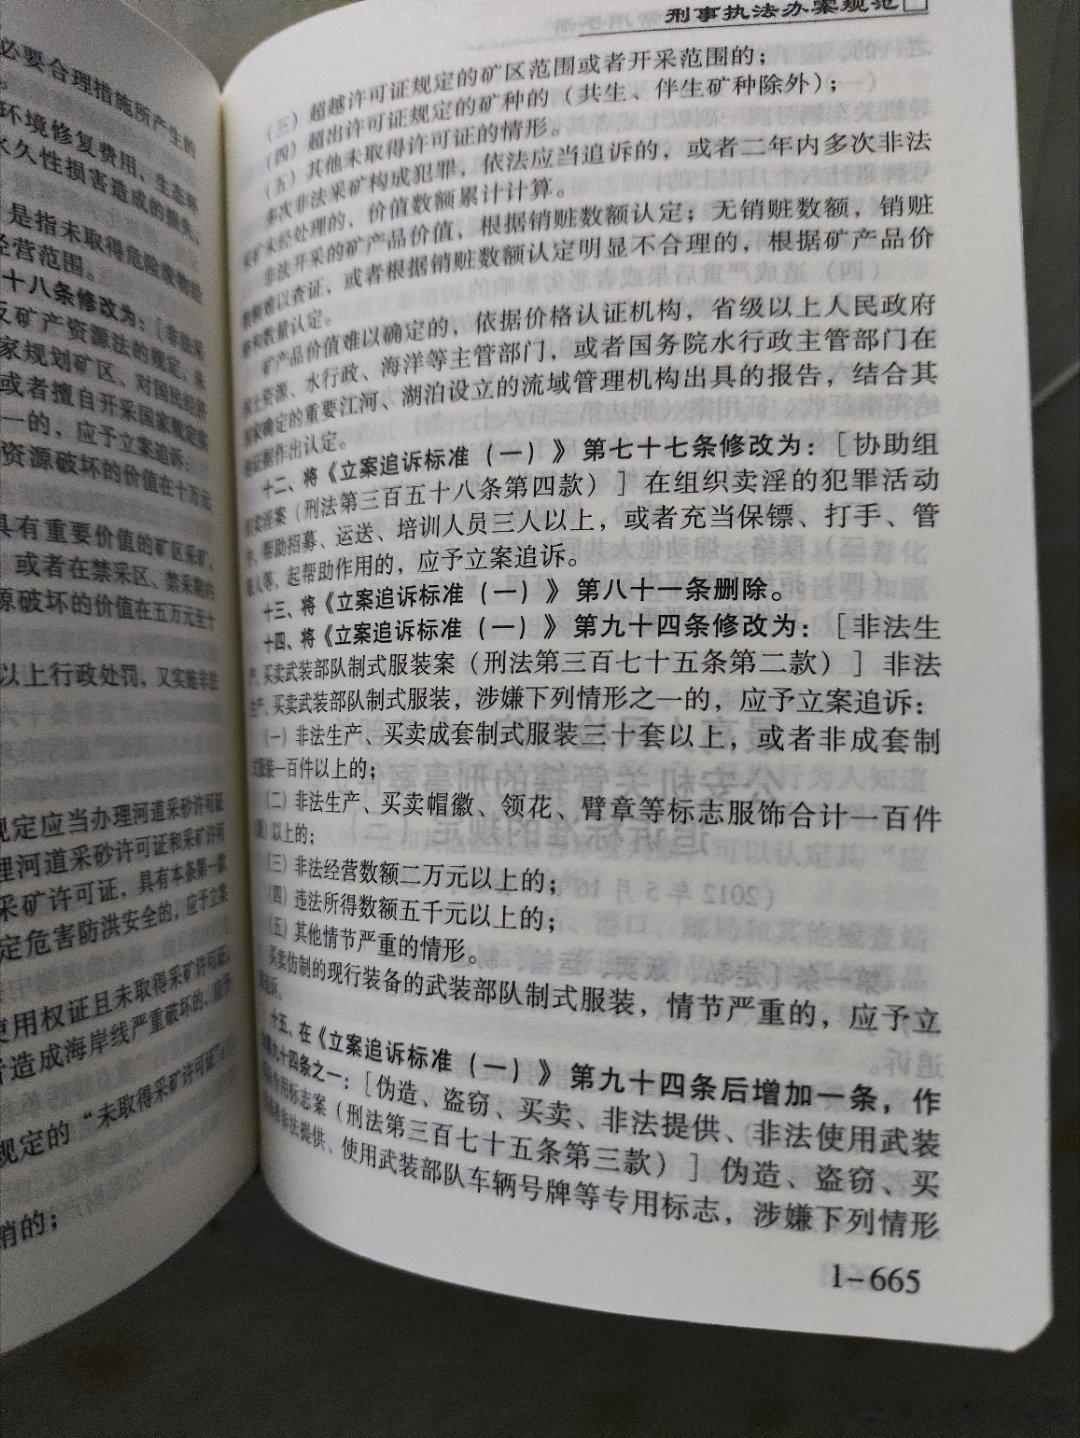 必要合理措施所产生的
环境修复费用、生态环
永久性损害造成的损失、
是指未取得危险废物经
经营范围。
十八条修改为：［非法采
反矿产资源法的规定，未
家规划矿区、对国民经济
或者擅自开采国家规定实
一的，应予立案追诉：
资源破坏的价值在十万元
具有重要价值的矿区采矿，
或者在禁采区、禁采期的
源破坏的价值在五万元至十
以上行政处罚，又实施非法
规定应当办理河道采砂许可证
理河道采砂许可证和采矿许可
采矿许可证，具有本条第一款
定危害防洪安全的，应予立案
使用权证且未取得采矿许可证，
者造成海岸线严重破坏的，应予
规定的“未取得采矿许可证”
销的；
刑事执法办案规范
（三）超越许可证规定的矿区范围或者开采范围的；
（四）超出许可证规定的矿种的（共生、伴生矿种除外）；
（五）其他未取得许可证的情形。
多次非法采矿构成犯罪，依法应当追诉的，或者二年内多次非法
采矿未经处理的，价值数额累计计算。
非法开采的矿产品价值，根据销赃数额认定；无销赃数额，销赃
数额难以查证，或者根据销赃数额认定明显不合理的，根据矿产品价
格和数量认定。
矿产品价值难以确定的，依据价格认证机构，省级以上人民政府
国土资源、水行政、海洋等主管部门，或者国务院水行政主管部门在
国家确定的重要江河、湖泊设立的流域管理机构出具的报告，结合其
他证据作出认定。
十二、将《立案追诉标准（一）》第七十七条修改为：［协助组
织卖淫案（刑法第三百五十八条第四款）］在组织卖淫的犯罪活动
中，帮助招募、运送、培训人员三人以上，或者充当保镖、打手、管
账人等，起帮助作用的，应予立案追诉。
十三、将《立案追诉标准（一）》第八十一条删除。
十四、将《立案追诉标准（一）》第九十四条修改为：［非法生
产、买卖武装部队制式服装案（刑法第三百七十五条第二款）］非法
生产、买卖武装部队制式服装，涉嫌下列情形之一的，应予立案追诉：
（一）非法生产、买卖成套制式服装三十套以上，或者非成套制
式服装一百件以上的；
（二）非法生产、买卖帽徽、领花、臂章等标志服饰合计一百件
（副）以上的；
（三）非法经营数额二万元以上的；
（四）违法所得数额五千元以上的；
（五）其他情节严重的情形。
买卖仿制的现行装备的武装部队制式服装，情节严重的，应予立
案追诉。
十五、在《立案追诉标准（一）》第九十四条后增加一条，作
为第九十四条之一：［伪造、盗窃、买卖、非法提供、非法使用武装
部队专用标志案（刑法第三百七十五条第三款）］伪造、盗窃、买
卖或者非法提供、使用武装部队车辆号牌等专用标志，涉嫌下列情形
1-665